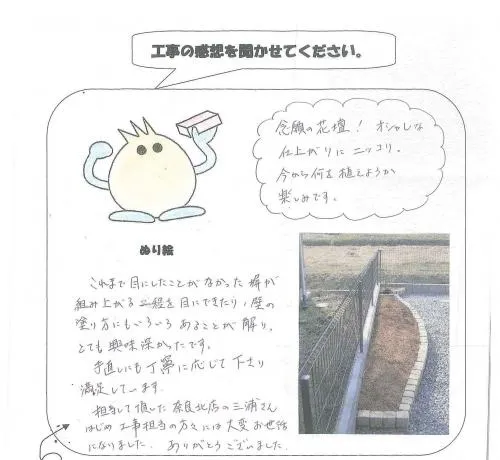 工事の感想を聞かせてください。
念願の花壇! オシャレな
仕上がりにニッコリ。
今から何を植えようか
楽しみです。
ぬり絵
これまで目にしたことがなかった塀が
組み上がる工程を目にできたり、壁の
塗り方にもいろいろあることが解り、
とても興味深かったです。
手直しにも丁寧に応じて下さり
満足しています。
担当して頂いた奈良北店の三浦さん
はじめ工事担当の方々には大変お世話
になりました。ありがとうございました。